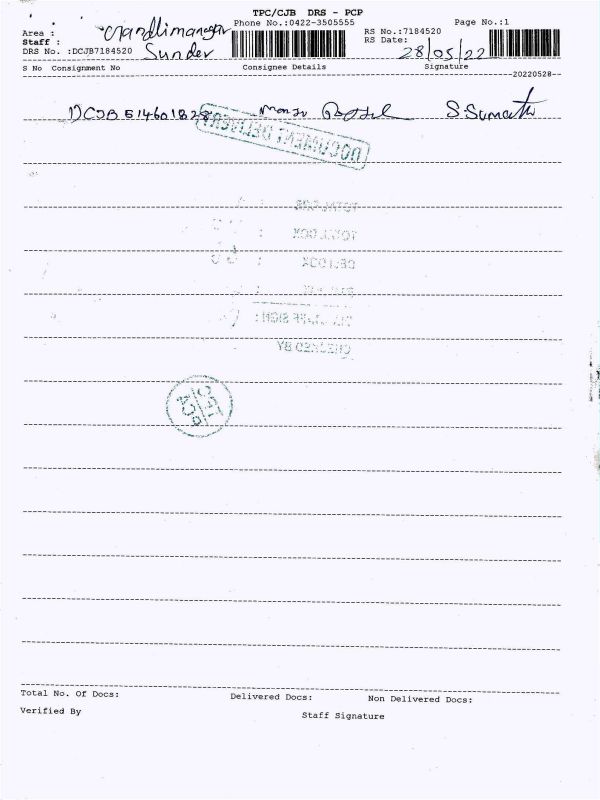 TPC/CJB DRS - PCP
Phone No.:0422-3505555 Page No.:1
Area :
Staff : Sunder
DRS No. :DCJB7184520
RS No.:7184520
RS Date: 28/05/22
S No Consignment No Consignee Details Signature
20220528
DCJB 514601828 S.Sumathi
DOCUMENT DELIVERY
CHECKED BY
Total No. Of Docs: Delivered Docs: Non Delivered Docs:
Verified By Staff Signature